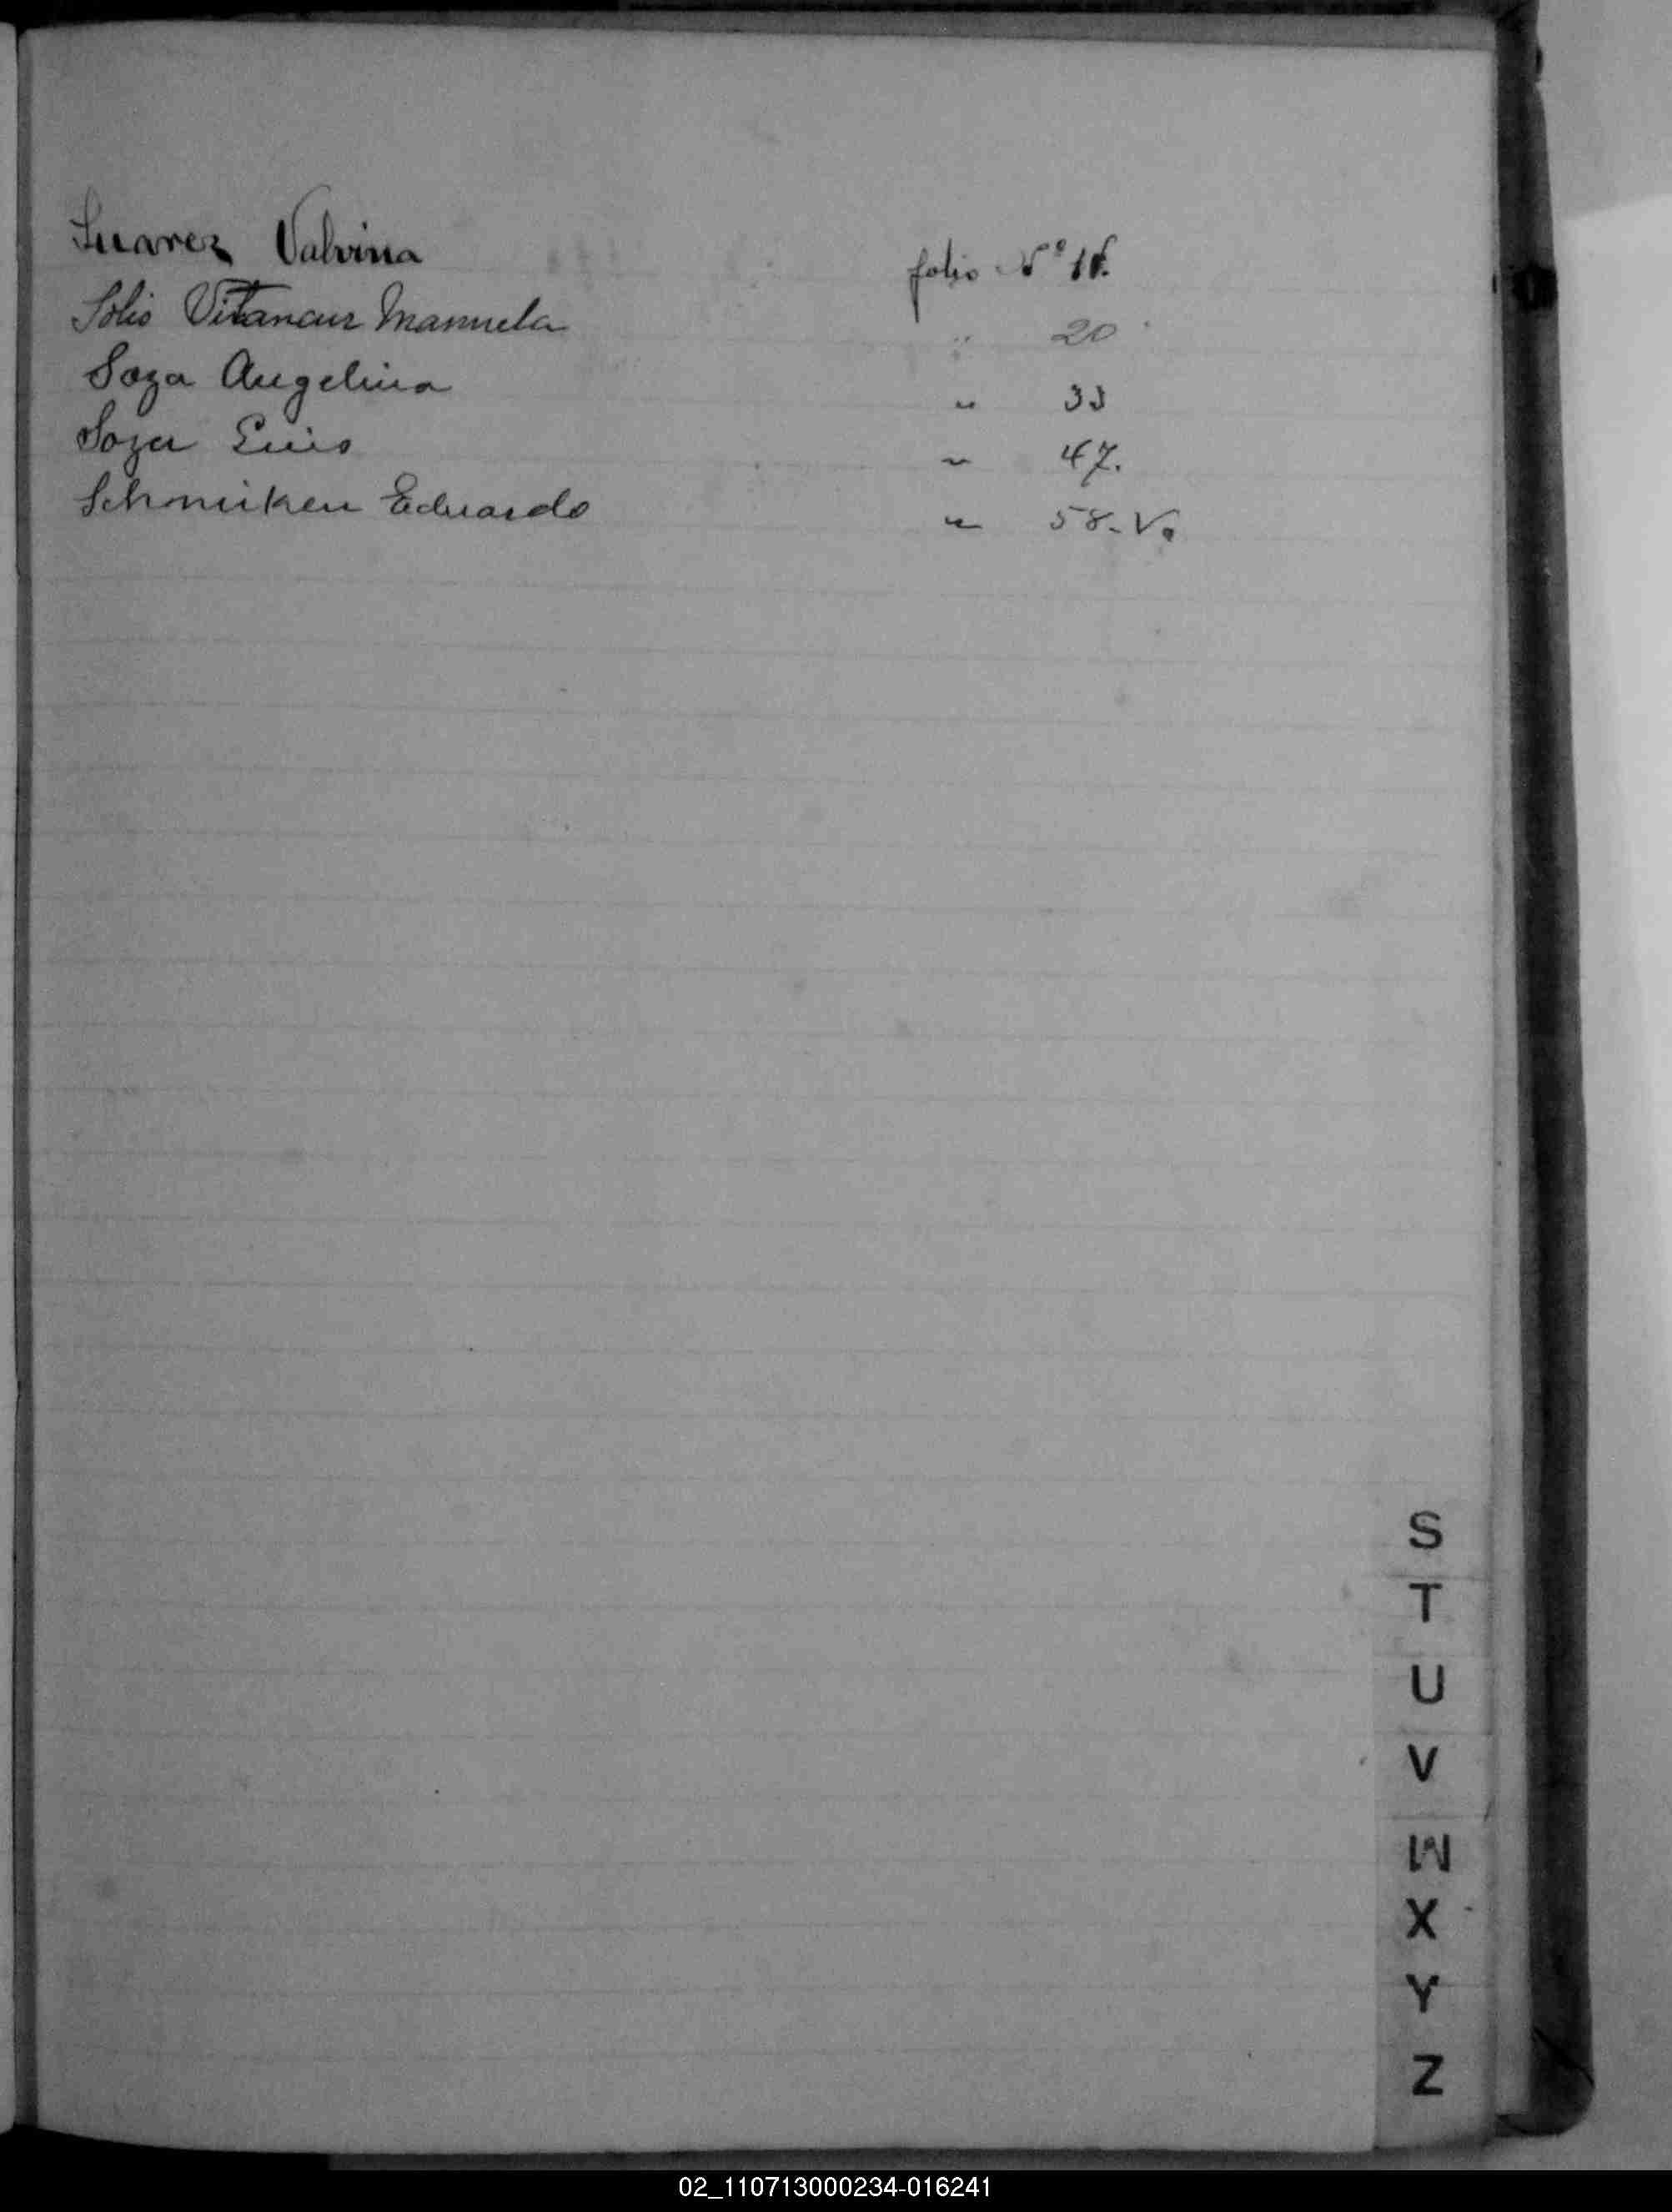 Suarez Valvina folio Nº
Solis Vitancur Manuela " 20
Soza Angelina " 33
Soza Luis " 47.
Schmiken Eduardo " 58-Vº
S
T
U
V
W
X
Y
Z
02_110713000234-016241